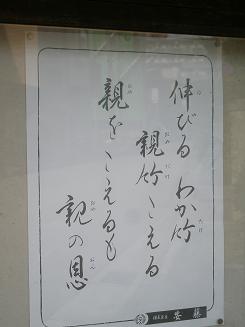 伸びるわか竹
親竹こえる
親をこえるも
親の恩
安藤